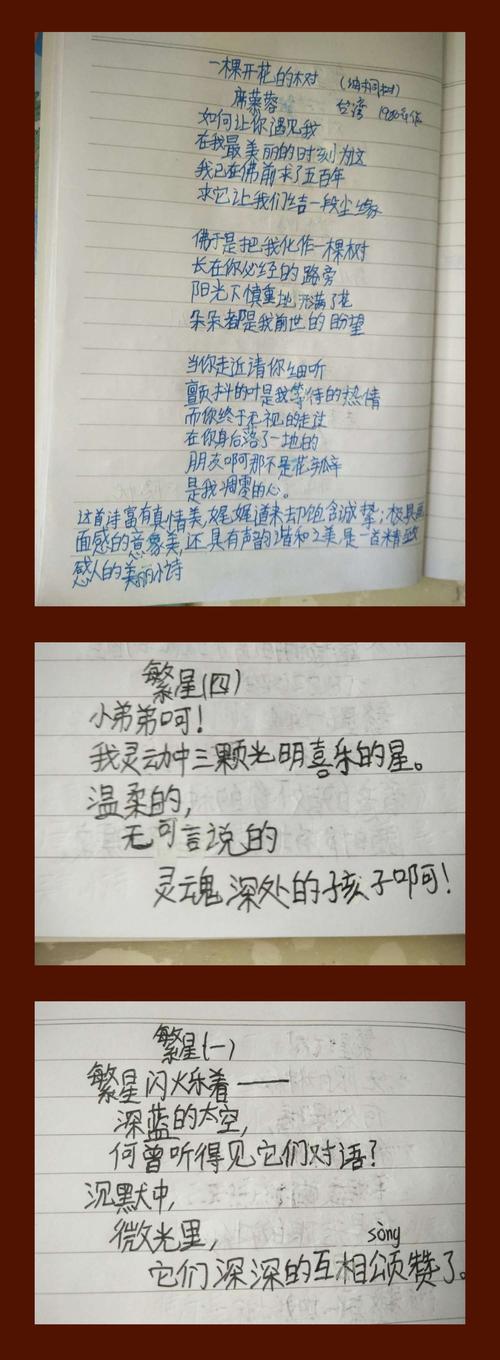 一棵开花的树
席慕蓉 台湾
如何让你遇见我
在我最美丽的时刻为这
我已在佛前求了五百年
求它让我们结一段尘缘
佛于是把我化作一棵树
长在你必经的路旁
阳光下慎重地开满了花
朵朵都是我前世的盼望
当你走近请你细听
颤抖的叶是我等待的热情
而你终于无视的走过
在你身后落了一地的
朋友啊那不是花瓣
是我凋零的心。
这首诗富有真情美,娓娓道来却饱含诚挚;极具画
面感的意象美,还具有声韵谐和之美,是一首精致
感人的美丽小诗
繁星(四)
小弟弟呵!
我灵动中三颗光明喜乐的星。
温柔的,
无可言说的
灵魂深处的孩子呵!
繁星(一)
繁星闪烁着——
深蓝的太空,
何曾听得见它们对语?
沉默中,
微光里,
sòng
它们深深的互相颂赞了。